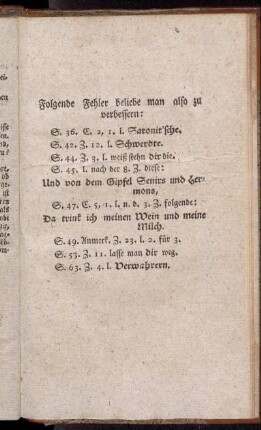 Folgende Fehler beliebe man also zu
verbessern:
S. 36. C. 2, 1. l. Saronit'sche.
S. 42. Z. 12. l. Schwerdte.
S. 44. Z. 3. l. weiß stehn dir die.
S. 45. l. nach der 8. Z. diese:
Und von dem Gipfel Senirs und Her-
mons,
S. 47. C. 5, 1. l. n. d. 3. Z. folgende:
Da trink ich meinen Wein und meine
Milch.
S. 49. Anmerk. Z. 23. l. 2. für 3.
S. 53. Z. 11. lasse man dir weg.
S. 63. Z. 4. l. Verwahrern.